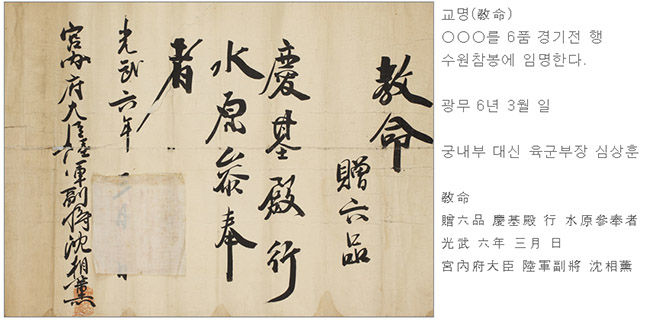 敎命
贈六品
慶基殿行
水原叅奉
者
光武六年
宮內府大臣陸軍副將沈相薰
교명(敎命)
○○○를 6품 경기전 행
수원참봉에 임명한다.
광무 6년 3월 일
궁내부 대신 육군부장 심상훈
敎命
贈六品 慶基殿 行 水原參奉者
光武 六年 三月 日
宮內府大臣 陸軍副將 沈相薰